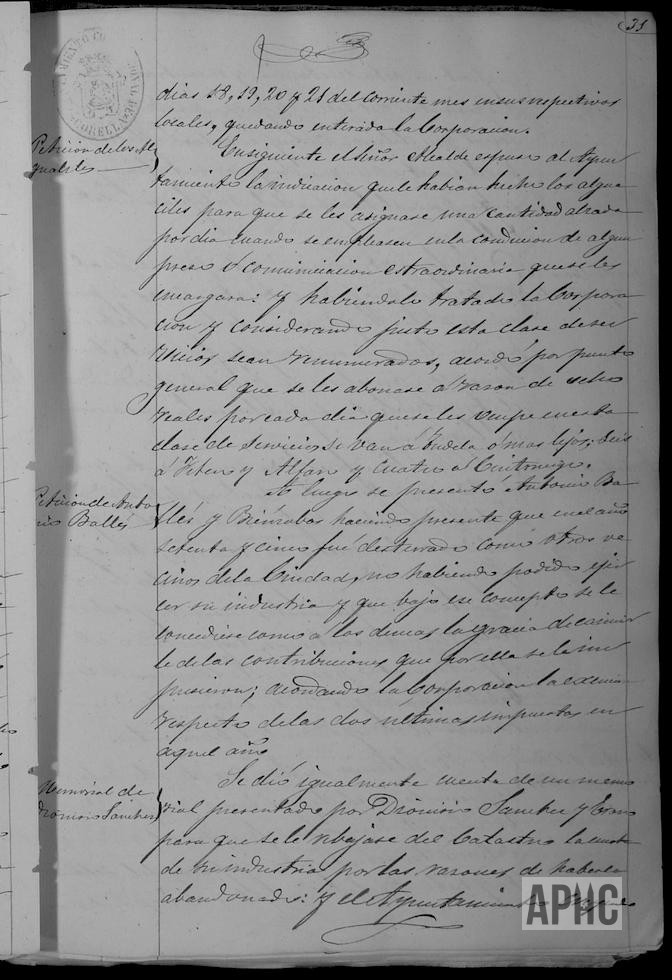 31
dias 18, 19, 20 y 21 del corriente mes en sus respectivos
locales, quedando enterada la Corporacion.
Peticion de los Al
guaciles
En siguiente el Señor Alcalde espuso al Ayun
tamiento la indicacion que le habian hecho los algua
ciles para que se les asignase una cantidad alzada
por dia cuando se empleasen en la conducion de algun
preso ó comunicacion estraordinaria que se les
encargara: y habiendolo tratado la Corpora
cion y considerando justo esta clase de ser
vicios sean remunerados, acordó por punto
general que se les abonase á razon de ocho
reales por cada dia que se les ocupe en esta
clase de servicios si van á Tudela ó mas lejos; seis
á Fitero y Alfaro y cuatro á Cintruenigo.
Peticion de Anto
nio Ballés
A luego se presentó Antonio Ba
llés y haciendo presente que en el año
setenta y cinco fué desterrado como otros ve
cinos de la Ciudad, no habiendo podido ejer
cer su industria y que bajo ese concepto se le
concediese como á los demas la gracia de
le de las contribuciones que por ella se le im
pusieron; acordando la Corporacion la
respecto de las dos últimas impuestas en
aquel año
Memorial de
Dionisio Sanchez
Se dió igualmente cuenta de un memo
rial presentado por Dionisio Sanchez y
para que se le rebajase del Catastro la cuota
de su industria por las razones de haberla
abandonado: y el Ayuntamiento
APHC